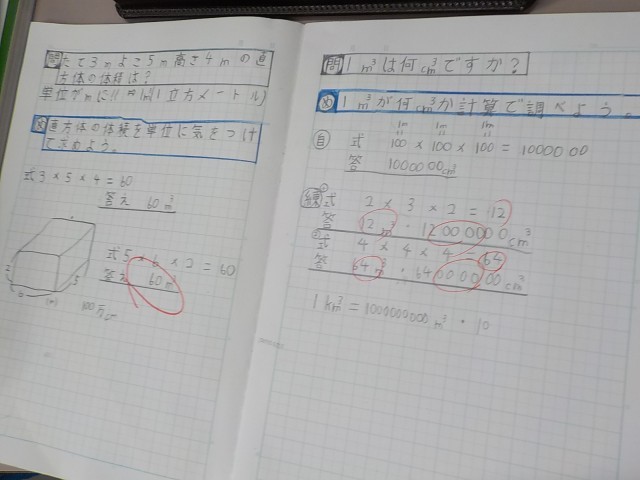 問 たて3mよこ5m高さ4mの直
方体の体積は?
単位がmに!! 1m³(1立方メートル)
め 直方体の体積を単位に気をつけ
て求めよう。
式 3×5×4=60
答え 60m³
式 5×6×2=60
答え 60m³
2
6
(m)
5
100万cm
問 1m³は何cm³ですか?
め 1m³が何cm³か計算で調べよう。
1m 1m 1m
自 式 100×100×100=1000000
答 1000000cm³
練 ① 式 2×3×2=12
答 12m³・12000000cm³
② 式 4×4×4=64
答 64m³・64000000cm³
1km³=1000000000m³・10